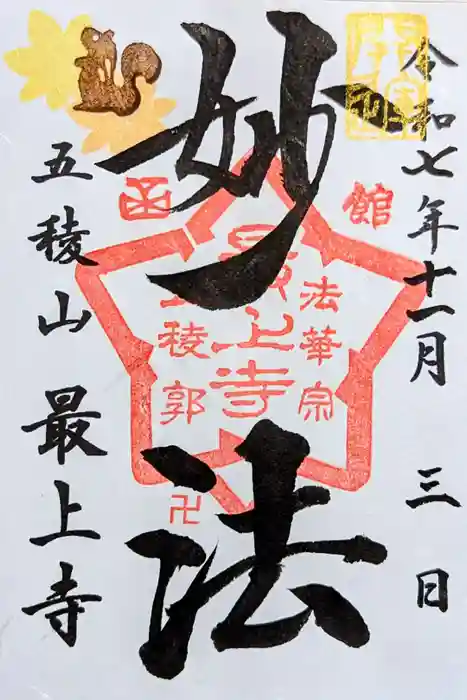 令和七年十一月三日
妙法
函館
法華宗
最上寺
五稜郭
卍
五稜山 最上寺